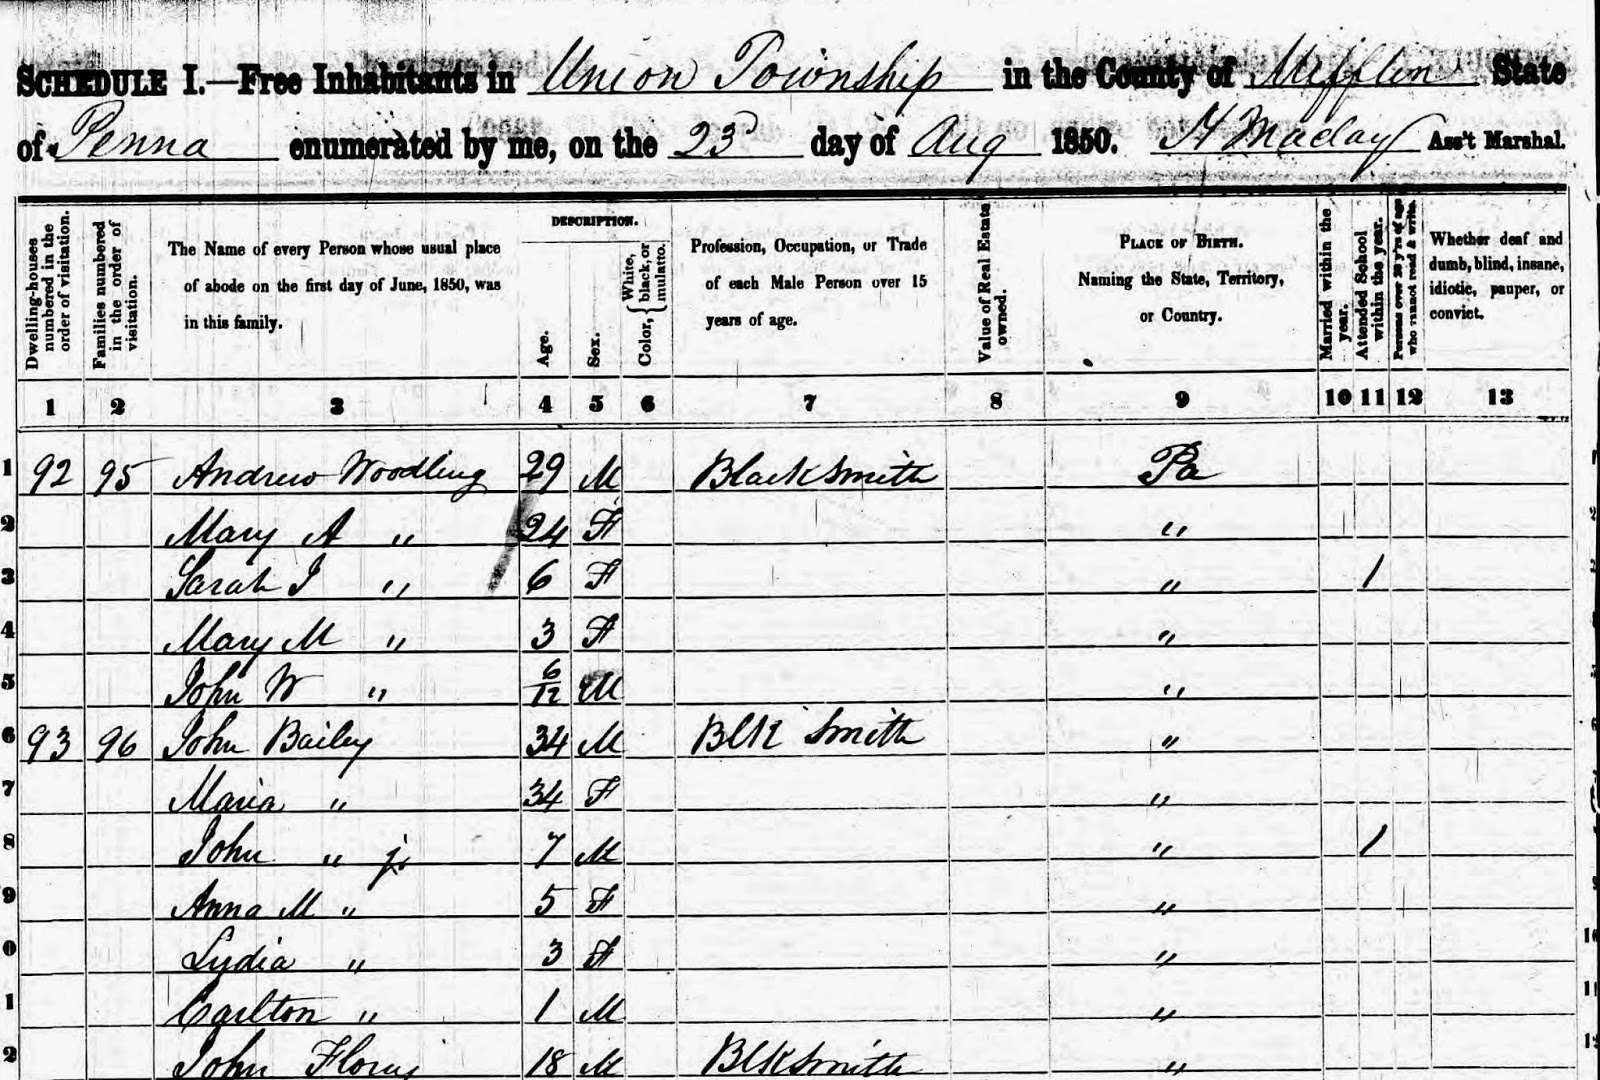 SCHEDULE I.—Free Inhabitants in Union Township in the County of Mifflin State
of Penna enumerated by me, on the 23 day of Aug 1850. H Maclay Ass't Marshal.
Dwelling-houses numbered in the order of visitation.
Families numbered in the order of visitation.
The Name of every Person whose usual place
of abode on the first day of June, 1850, was
in this family.
DESCRIPTION.
Age.
Sex.
Color, { White, black, or mulatto.
Profession, Occupation, or Trade
of each Male Person over 15
years of age.
Value of Real Estate owned.
PLACE OF BIRTH.
Naming the State, Territory,
or Country.
Married within the year.
Attended School within the year.
Persons over 20 y'rs of age who cannot read & write.
Whether deaf and
dumb, blind, insane,
idiotic, pauper, or
convict.
1 2 3 4 5 6 7 8 9 10 11 12 13
1 92 95 Andrew Woodling 29 M Blacksmith Pa
2 Mary A " 24 F "
3 Sarah J " 6 F " 1
4 Mary M " 3 F "
5 John W " 6/12 M "
6 93 96 John Bailey 34 M Blk Smith "
7 Maria " 34 F "
8 John " jr 7 M " 1
9 Anna M " 5 F "
0 Lydia " 3 F " 10
1 Carlton " 1 M " 11
2 John 18 M Blksmith " 12